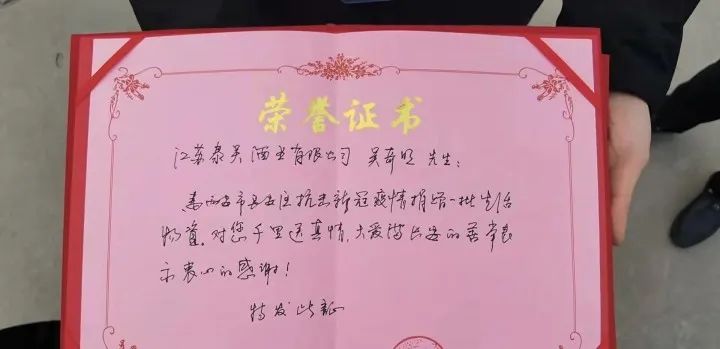 荣誉证书
江苏泉吴酒业有限公司 吴奇明 先生:
为西安市长安区抗击新冠疫情捐赠一批生活
物资。对您千里送真情,大爱满长安的善举表
示衷心的感谢!
特发此证